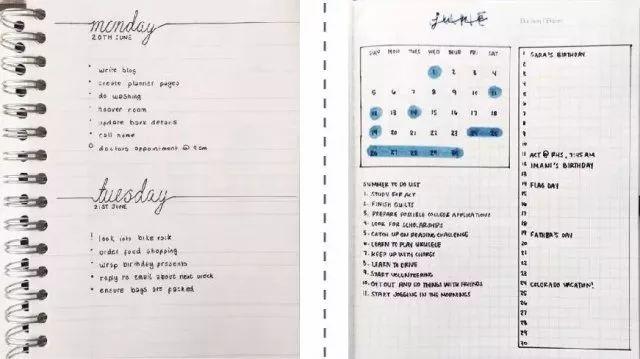 monday
20TH JUNE
• write blog
• create planner pages
• do washing
• hoover room
• update bank details
• call home
○ doctors appointment @ 9am
tuesday
21ST JUNE
! look into bike rack
• order food shopping
• wrap birthday presents
• reply to email about next week
• ensure bags are packed
JUNE
SUN MON TUES WED THUR FRI SAT
1 2 3 4
5 6 7 8 9 10 11
12 13 14 15 16 17 18
19 20 21 22 23 24 25
26 27 28 29 30
SUMMER TO DO LIST
1. STUDY FOR ACT
2. FINISH QUILTS
3. PREPARE POSSIBLE COLLEGE APPLICATIONS
4. LOOK FOR SCHOLARSHIPS
5. CATCH UP ON READING CHALLENGE
6. LEARN TO PLAY UKULELE
7. KEEP UP WITH
8. LEARN TO DRIVE
9. START VOLUNTEERING
10. GET OUT AND DO THINGS WITH FRIENDS
11. START JOGGING IN THE MORNINGS
1 SARA'S BIRTHDAY
2
3
4
5
6
7
8
9
10
11 ACT @ RHS, 7:45 AM
12 IMANI'S BIRTHDAY
13
14 FLAG DAY
15
16
17
18
19 FATHER'S DAY
20
21
22
23
24 COLORADO VACATION!
25
26
27
28
29
30